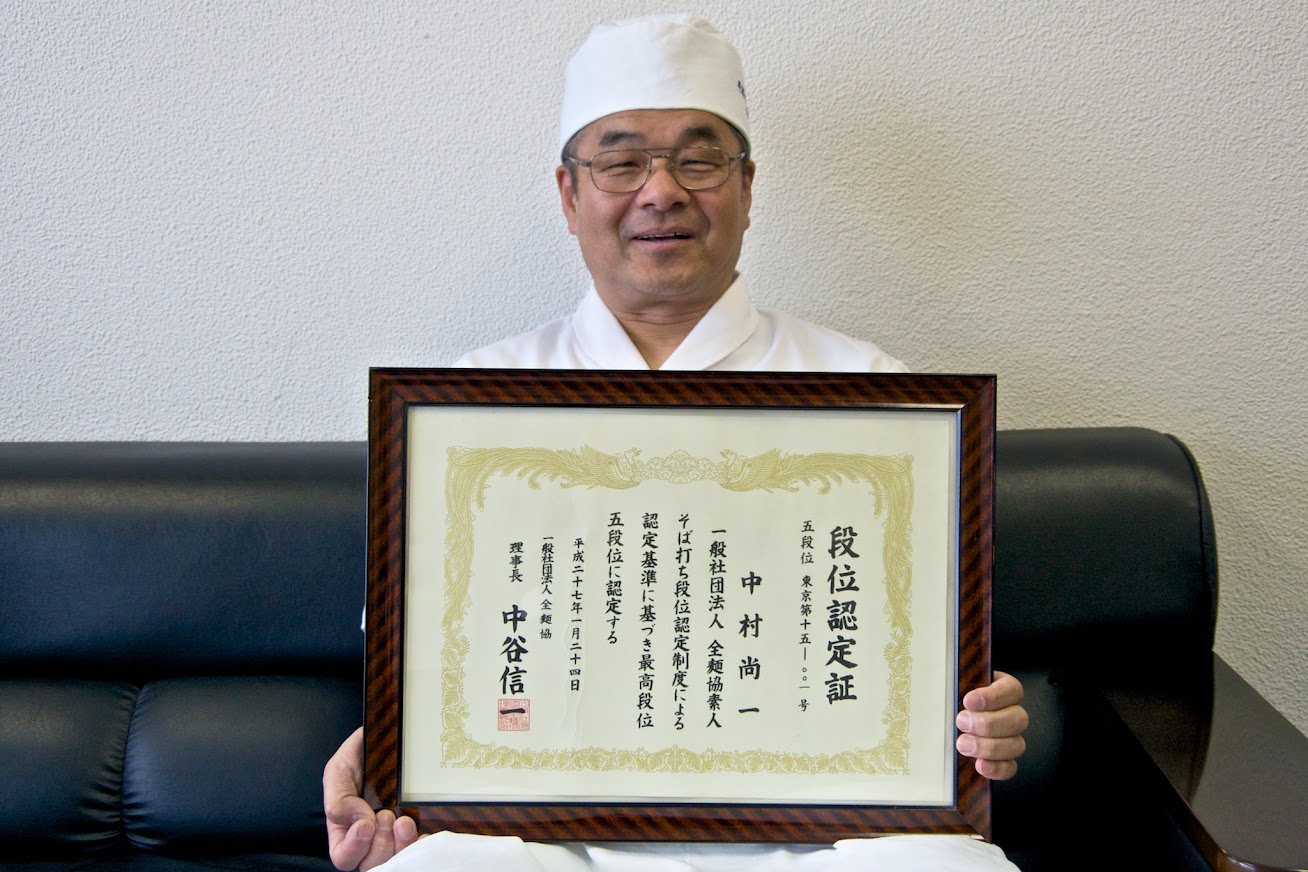 段位認定証
五段位 東京第十五―〇〇一号
中村尚一
一般社団法人 全麺協素人
そば打ち段位認定制度による
認定基準に基づき最高段位
五段位に認定する
平成二十七年一月二十四日
一般社団法人 全麺協
理事長 中谷信一